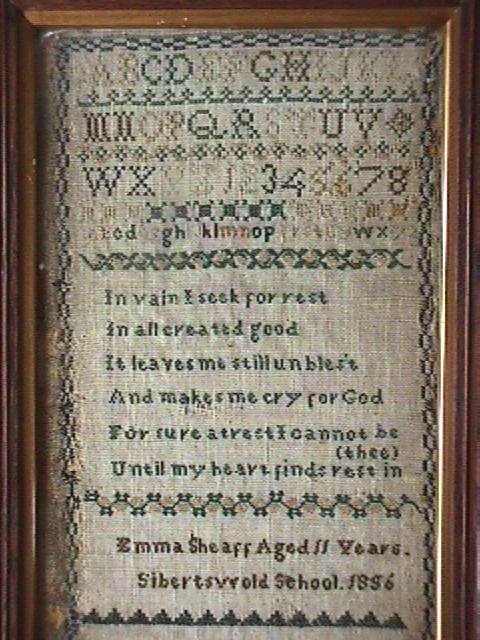 ABCDEFGHIJKL
MNOPQRSTUV
WXYZ12345678
abcdefgh klmnopqrstu wx
In vain I seek for rest
In all created good
It leaves me still unblest
And makes me cry for God
For sure at rest I cannot be
(thee)
Until my heart finds rest in
Emma Sheaff Aged 11 Years.
Sibertswold School. 1886